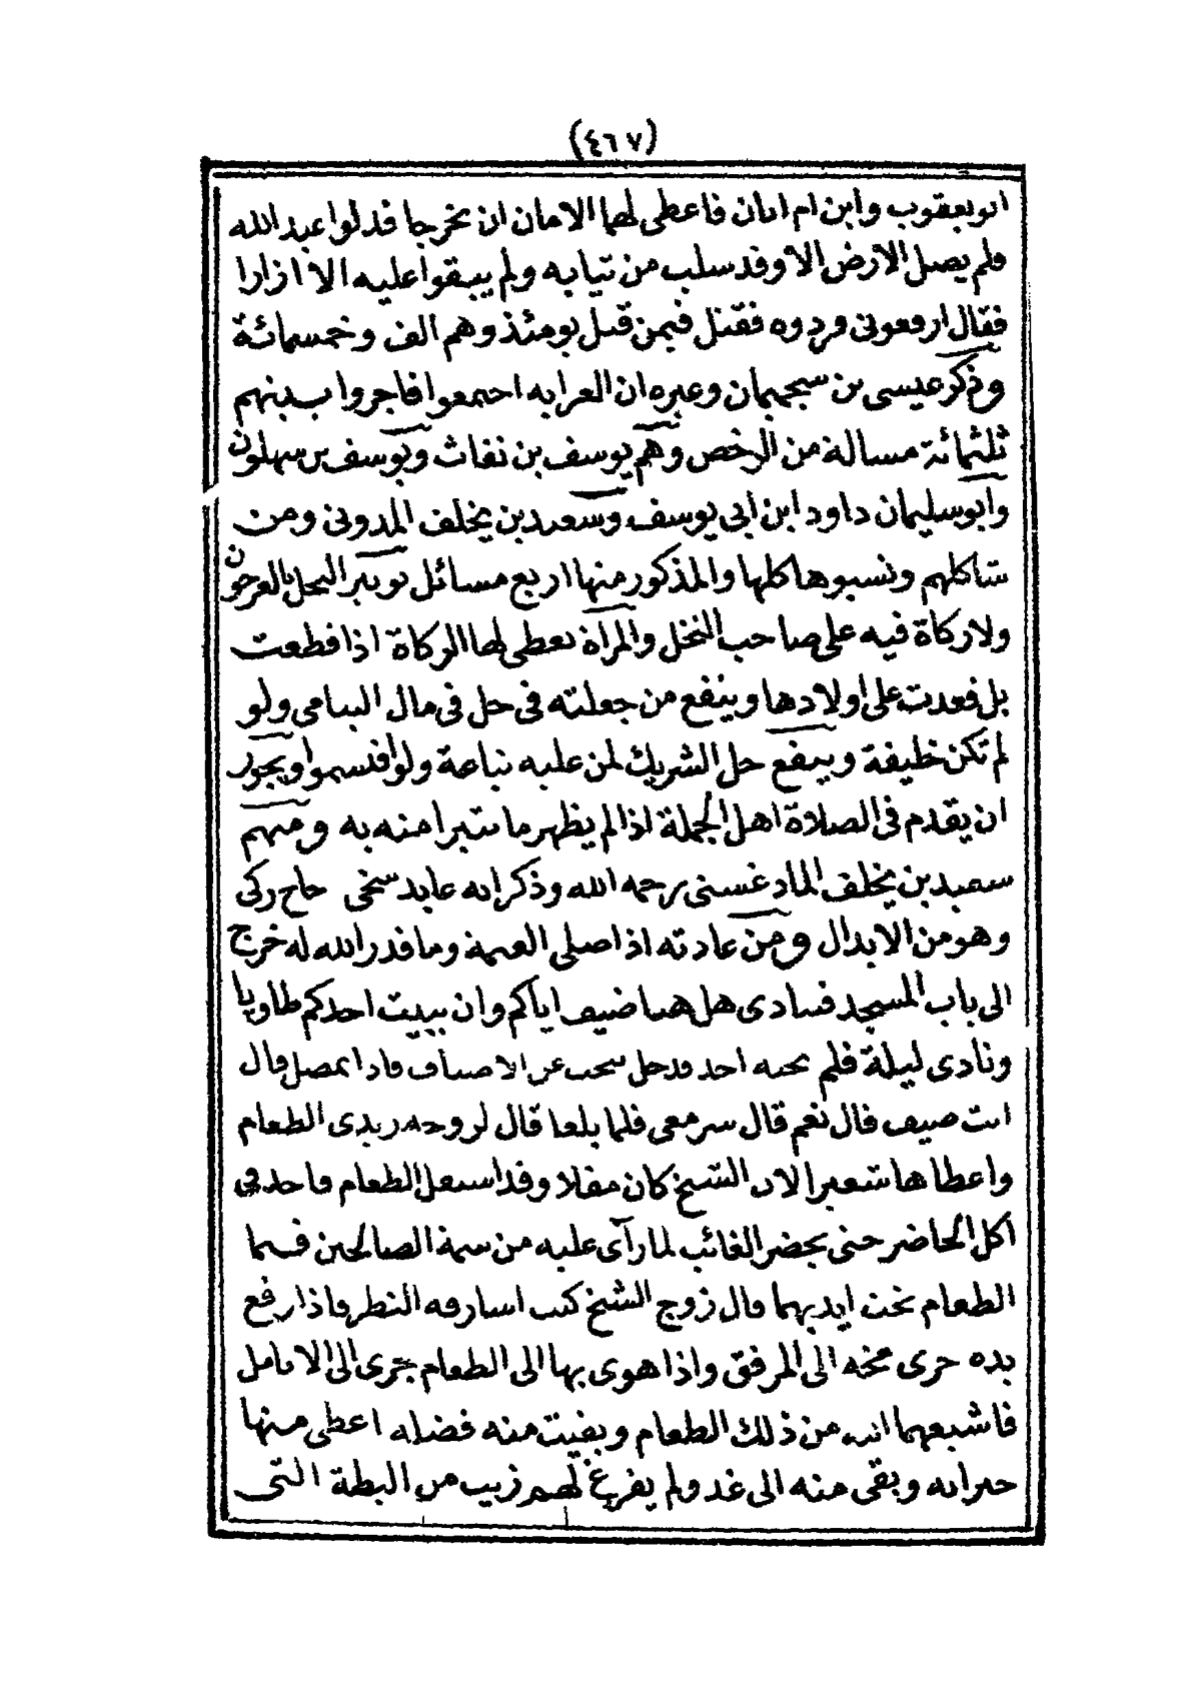 (٤٦٧)
ابو يعقوب وابن ام ابان فاعطى لهما الامان ان يخرجا فدلوا عبد الله
فلم يصل الارض الا وقد سلب من ثيابه ولم يبقوا عليه الا ازارا
فقال ارفعونى وردوه فقتل فيمن قتل يومئذ وهم الف وخمسمائة
وذكر عيسى بن سجميمان وغيره ان العزابه اجتمعوا فاجروا بينهم
ثلثمائة مسالة من الرخص وهم يوسف بن نفاث ويوسف بن سهلون
وابو سليمان داود ابن ابى يوسف وسعيد بن يخلف المدونى ومن
شاكلهم ونسبوها كلها والمذكور منها اربع مسائل توبير النخل بالعرجون
ولا زكاة فيه على صاحب النخل والمراة تعطى لها الزكاة اذا قطعت
بل قعدت على اولادها وينفع من جعلته فى حل فى مال اليتامى ولو
لم تكن خليفة وينفع حل الشريك لمن عليه تباعة ولو اقتسموا ويجوز
ان يقدم فى الصلاة اهل الجملة اذا لم يظهر ما يتبرا منه به ومنهم
سعيد بن يخلف المادغسنى رحمه الله وذكر انه عابد سخى حاج زكى
وهو من الابدال ومن عادته اذا صلى العتمة وما قدر الله له خرج
الى باب المسجد فنادى هل هنا ضيف اياكم وان يبيت احدكم طاويا
ونادى ليلة فلم يجبه احد فدخل يبحث عن الاضياف فاذا بمصل قال
انت ضيف قال نعم قال سر معى فلما بلغا قال لزوجه زيدى الطعام
واعطاها شعيرا لان الشيخ كان مقلا وقد استعمل الطعام فاخذ فى
اكل الحاضر حتى يحضر الغائب لما رآى عليه من سمة الصالحين فنما
الطعام تحت ايديهما قال زوج الشيخ كنت اسارقه النظر فاذا رفع
يده جرى مخه الى المرفق واذا هوى بها الى الطعام جرى الى الانامل
فاشبعهما الله من ذلك الطعام وبقيت منه فضله اعطى منها
جيرانه وبقى منه الى غد ولم يفرغ لهم زيت من البطة التى